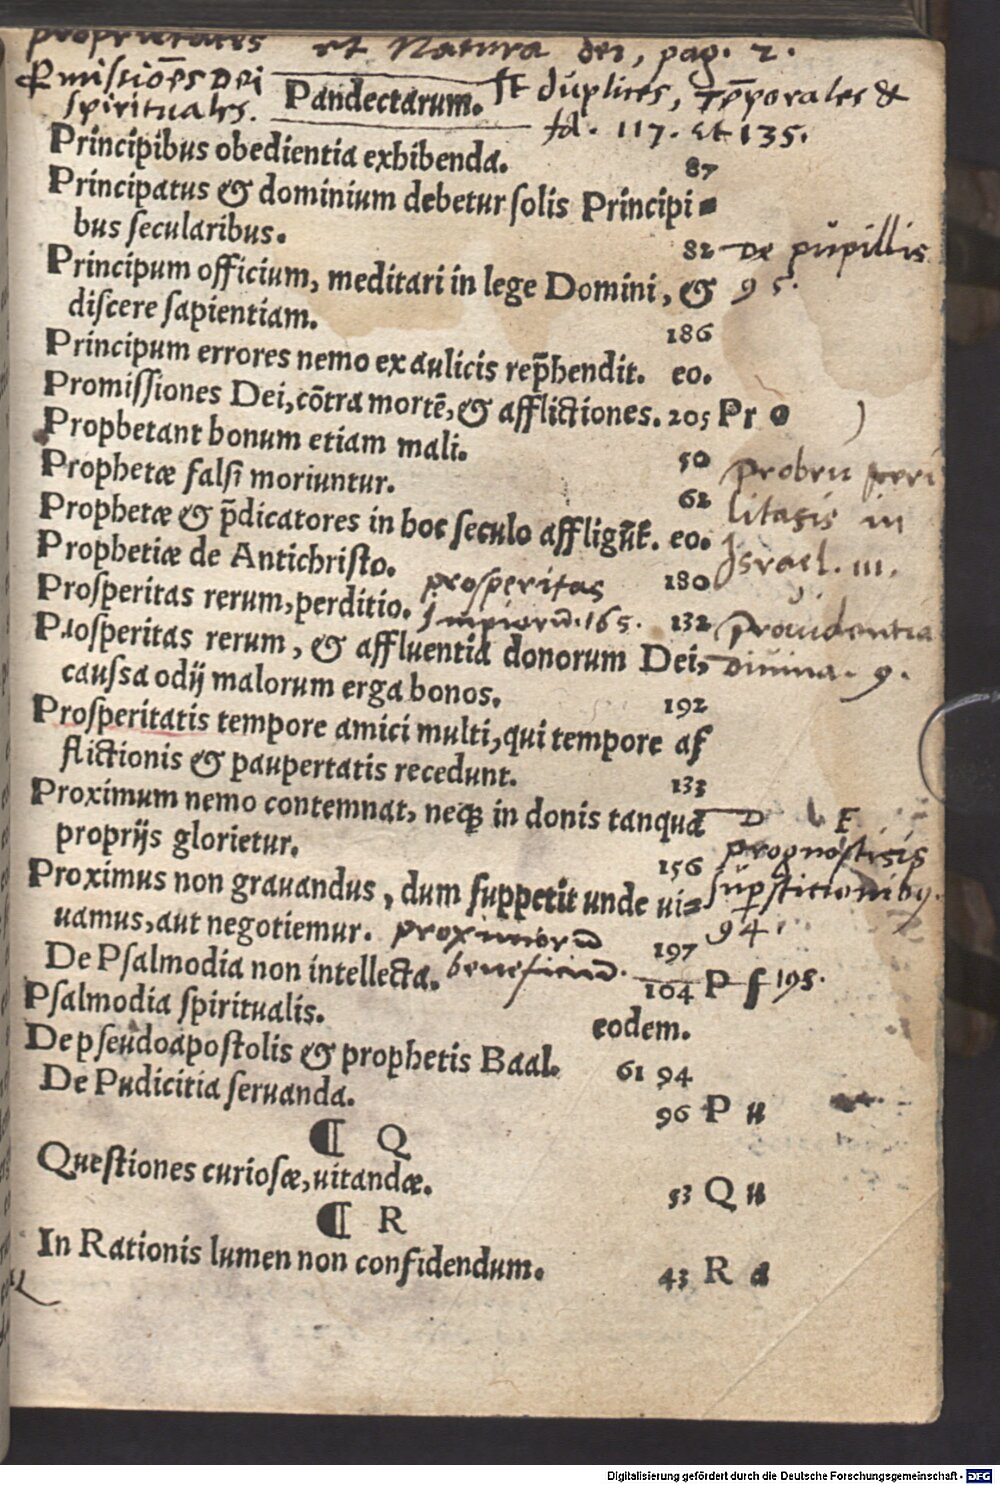 proprietates et Natura dei, pag. 2.
Pmissiōes Dei
spirituales.
Pandectarum.
st duplices, Tēporales &
fd. 117. et 135.
Principibus obedientia exhibenda. 87
Principatus & dominium debetur solis Principi-
bus secularibus. 82
De pupillis
95.
Principum officium, meditari in lege Domini, &
discere sapientiam. 186
Principum errores nemo ex aulicis rep̄hendit. eo.
Promissiones Dei, cōtra mortē, & afflictiones. 205 Pr o
Prophetant bonum etiam mali. 50
Prophetæ falsi moriuntur. 62
Prophetæ & p̄dicatores in hoc seculo affligūt. eo.
Israel. 111.
Prophetiæ de Antichristo. 180
prosperitas
impiorū. 165.
Prosperitas rerum, perditio. 132
providentia
Divina. 9.
Prosperitas rerum, & affluentia donorum Dei,
caussa odij malorum erga bonos. 192
Prosperitatis tempore amici multi, qui tempore af
flictionis & paupertatis recedunt. 133
Proximum nemo contemnat, neq; in donis tanquā
proprijs glorietur. 156
De
prognosticis
supstitionibq.
94.
Proximus non grauandus, dum suppetit unde ui-
uamus, aut negotiemur. 197
proximorū
beneficium. 195.
De Psalmodia non intellecta. 164 P s
Psalmodia spiritualis. eodem.
De pseudoapostolis & prophetis Baal. 61 94
De Pudicitia seruanda. 96 P u
¶ Q
Questiones curiosæ, uitandæ. 53 Q u
¶ R
In Rationis lumen non confidendum. 43 R a
Digitalisierung gefördert durch die Deutsche Forschungsgemeinschaft - DFG